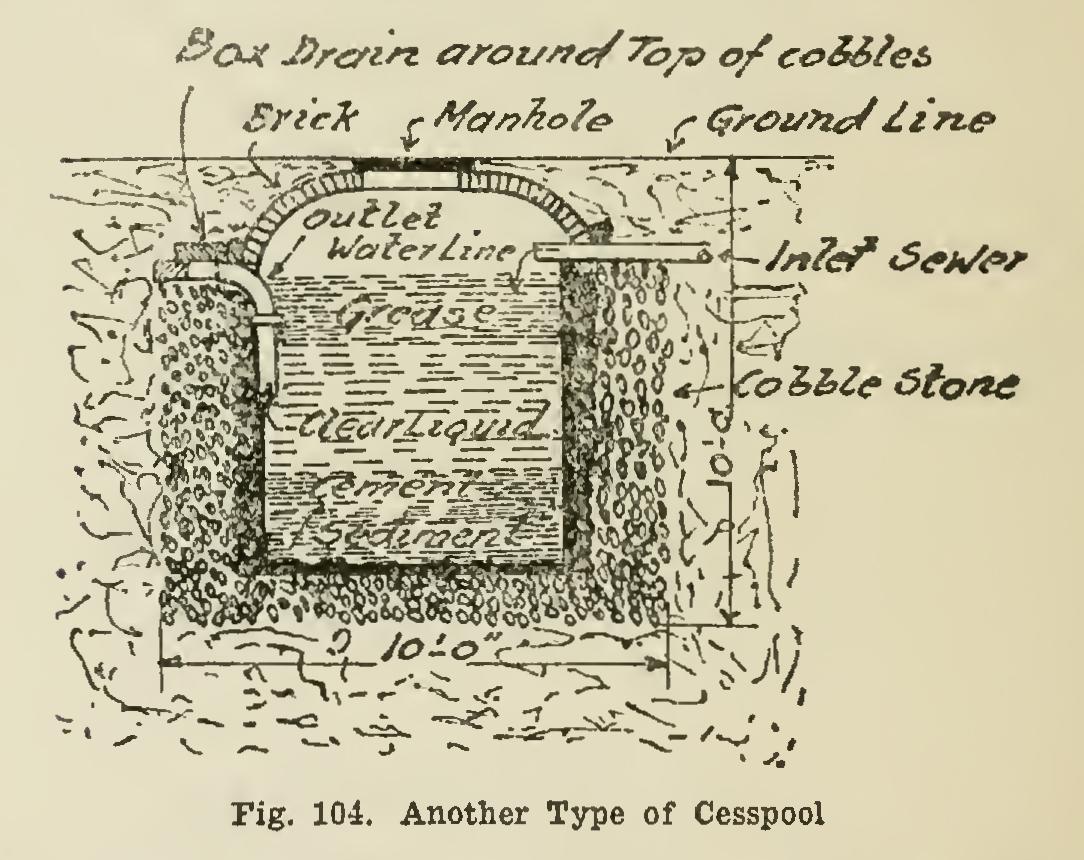 Box Drain around Top of cobbles
Brick
Manhole
Ground Line
outlet
Water Line
Inlet Sewer
Grease
Cobble Stone
Clear Liquid
10'-0"
Cement
Sediment
10'-0"
Fig. 104. Another Type of Cesspool